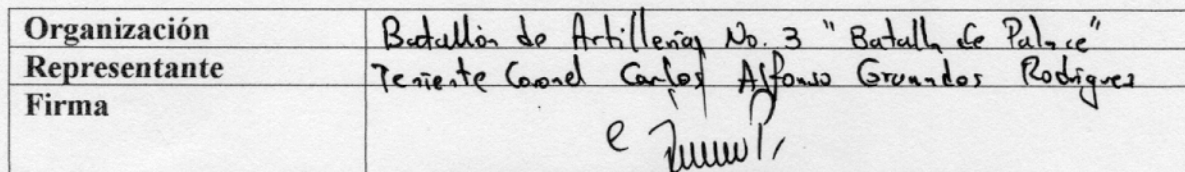 Organización Batallón de Artillería No. 3 "Batalla de Palace"
Representante Teniente Coronel Carlos Alfonso Granados Rodriguez
Firma